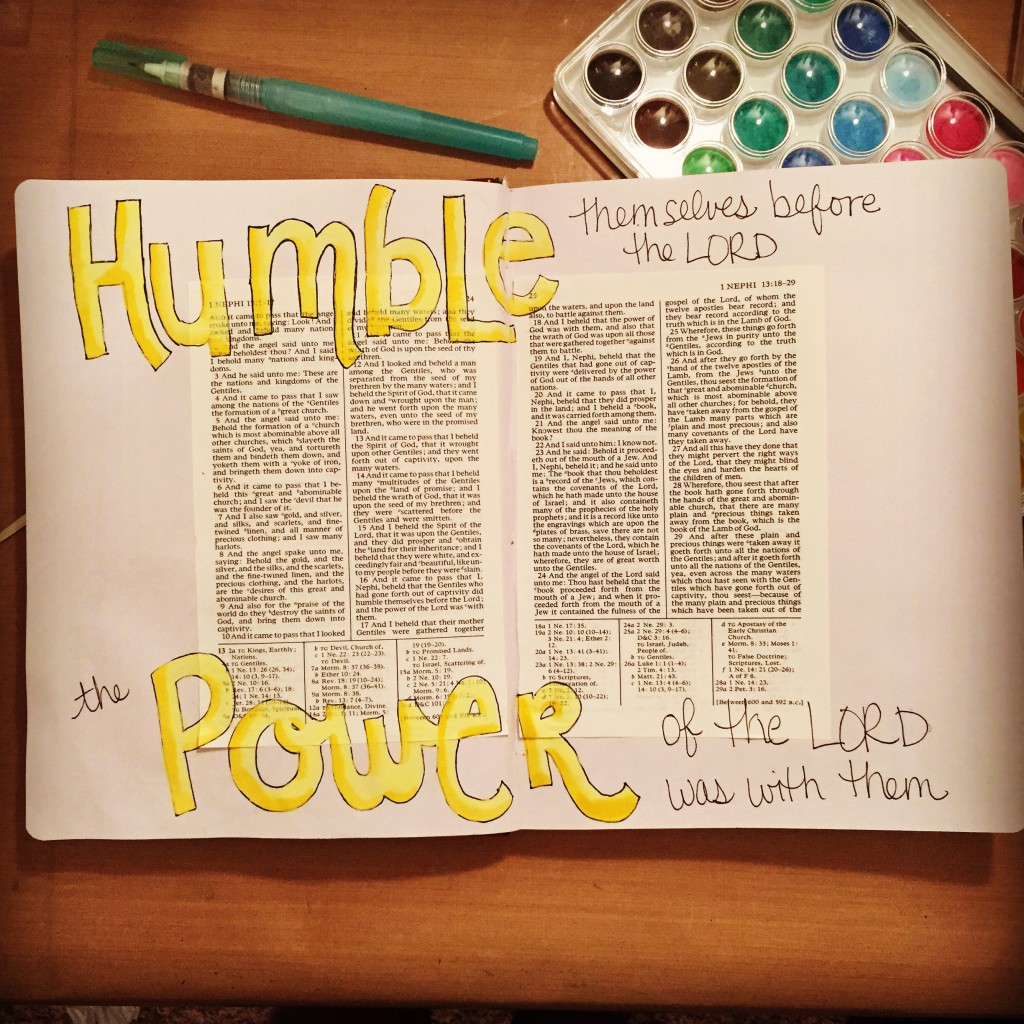 Humble
themselves before
the LORD
1 NEPHI
24
And it came to pass that the angel
spake unto me, saying: Look! And I
and many nations
kingdoms.
the angel said unto me:
beholdest thou? And I said:
I behold many nations and king-
doms.
3 And he said unto me: These are
the nations and kingdoms of the
Gentiles.
4 And it came to pass that I saw
among the nations of the Gentiles
the formation of a great church.
5 And the angel said unto me:
Behold the formation of a church
which is most abominable above all
other churches, which slayeth the
saints of God, yea, and tortureth
them and bindeth them down, and
yoketh them with a yoke of iron,
and bringeth them down into cap-
tivity.
6 And it came to pass that I be-
held this great and abominable
church; and I saw the devil that he
was the founder of it.
7 And I also saw gold, and silver,
and silks, and scarlets, and fine-
twined linen, and all manner of
precious clothing; and I saw many
harlots.
8 And the angel spake unto me,
saying: Behold the gold, and the
silver, and the silks, and the scarlets,
and the fine-twined linen, and the
precious clothing, and the harlots,
are the desires of this great and
abominable church.
9 And also for the praise of the
world do they destroy the saints of
God, and bring them down into
captivity.
10 And it came to pass that I looked
and beheld many waters; and they
divided the Gentiles from the
my
came to pass that the
angel said unto me: Behold the
wrath of God is upon the seed of thy
brethren.
12 And I looked and beheld a man
among the Gentiles, who was
separated from the seed of my
brethren by the many waters; and I
beheld the Spirit of God, that it came
down and wrought upon the man;
and he went forth upon the many
waters, even unto the seed of my
brethren, who were in the promised
land.
13 And it came to pass that I beheld
the Spirit of God, that it wrought
upon other Gentiles; and they went
forth out of captivity, upon the
many waters.
14 And it came to pass that I beheld
many multitudes of the Gentiles
upon the land of promise; and I
beheld the wrath of God, that it was
upon the seed of my brethren; and
they were scattered before the
Gentiles and were smitten.
15 And I beheld the Spirit of the
Lord, that it was upon the Gentiles,
and they did prosper and obtain
the land for their inheritance; and I
beheld that they were white, and ex-
ceedingly fair and beautiful, like un-
to my people before they were slain.
16 And it came to pass that I,
Nephi, beheld that the Gentiles who
had gone forth out of captivity did
humble themselves before the Lord;
and the power of the Lord was with
them.
17 And I beheld that their mother
Gentiles were gathered together
13 2a TG Kings, Earthly;
Nations.
TG Gentiles.
1 Ne. 13: 26 (26, 34);
14: 10 (3, 9-17).
2 Ne. 10: 16.
Rev. 17: 6 (3-6); 18:
24; 1 Ne. 14: 13.
Jer. 28:
TG Bondage, Spiritual.
b TG Devil, Church of.
c 1 Ne. 22: 23 (22-23).
TG Devil.
7a Morm. 8: 37 (36-38).
b Ether 10: 24.
8a Rev. 18: 19 (10-24);
Morm. 8: 37 (36-41).
9a Morm. 8: 38.
b Rev. 13: 7 (4-7).
12a TG Guidance, Divine.
19 (19-20).
b TG Promised Lands.
c 1 Ne. 22: 7.
TG Israel, Scattering of.
15a Morm. 5: 19.
b 2 Ne. 10: 19.
c 2 Ne. 5: 21; 4 Ne. 1: 10.
Morm. 9: 6.
29
1 NEPHI 13:18-29
upon the waters, and upon the land
also, to battle against them.
18 And I beheld that the power of
God was with them, and also that
the wrath of God was upon all those
that were gathered together against
them to battle.
19 And I, Nephi, beheld that the
Gentiles that had gone out of cap-
tivity were delivered by the power
of God out of the hands of all other
nations.
20 And it came to pass that I,
Nephi, beheld that they did prosper
in the land; and I beheld a book,
and it was carried forth among them.
21 And the angel said unto me:
Knowest thou the meaning of the
book?
22 And I said unto him: I know not.
23 And he said: Behold it proceed-
eth out of the mouth of a Jew. And
I, Nephi, beheld it; and he said unto
me: The book that thou beholdest
is a record of the Jews, which con-
tains the covenants of the Lord,
which he hath made unto the house
of Israel; and it also containeth
many of the prophecies of the holy
prophets; and it is a record like unto
the engravings which are upon the
plates of brass, save there are not
so many; nevertheless, they contain
the covenants of the Lord, which he
hath made unto the house of Israel;
wherefore, they are of great worth
unto the Gentiles.
24 And the angel of the Lord said
unto me: Thou hast beheld that the
book proceeded forth from the
mouth of a Jew; and when it pro-
ceeded forth from the mouth of a
Jew it contained the fulness of the
gospel of the Lord, of whom the
twelve apostles bear record; and
they bear record according to the
truth which is in the Lamb of God.
25 Wherefore, these things go forth
from the Jews in purity unto the
Gentiles, according to the truth
which is in God.
26 And after they go forth by the
hand of the twelve apostles of the
Lamb, from the Jews unto the
Gentiles, thou seest the formation of
that great and abominable church,
which is most abominable above
all other churches; for behold, they
have taken away from the gospel of
the Lamb many parts which are
plain and most precious; and also
many covenants of the Lord have
they taken away.
27 And all this have they done that
they might pervert the right ways
of the Lord, that they might blind
the eyes and harden the hearts of
the children of men.
28 Wherefore, thou seest that after
the book hath gone forth through
the hands of the great and abomin-
able church, that there are many
plain and precious things taken
away from the book, which is the
book of the Lamb of God.
29 And after these plain and
precious things were taken away it
goeth forth unto all the nations of
the Gentiles; and after it goeth forth
unto all the nations of the Gentiles,
yea, even across the many waters
which thou hast seen with the Gen-
tiles which have gone forth out of
captivity, thou seest—because of
the many plain and precious things
which have been taken out of the
18a 1 Ne. 17: 35.
19a 2 Ne. 10: 10 (10-14);
3 Ne. 21: 4; Ether 2:
12.
20a 1 Ne. 13: 41 (3-41);
14: 23.
23a 1 Ne. 13: 38; 2 Ne. 29:
6 (4-12).
b TG Scriptures,
Preservation of.
24a 2 Ne. 29: 3.
25a 2 Ne. 29: 4 (4-6);
D&C 3: 16.
TG Israel, Judah,
People of.
b TG Gentiles.
26a Luke 1: 1 (1-4);
2 Tim. 4: 13.
b Matt. 21: 43.
c 1 Ne. 13: 4 (4-6);
14: 10 (3, 9-17).
d TG Apostasy of the
Early Christian
Church.
e Morm. 8: 33; Moses 1:
41.
TG False Doctrine;
Scriptures, Lost.
f 1 Ne. 14: 21 (20-26);
A of F 8.
28a 1 Ne. 14: 23.
29a 2 Pet. 3: 16.
[Between 600 and 592 B.C.]
the
Power
of the LORD
was with them